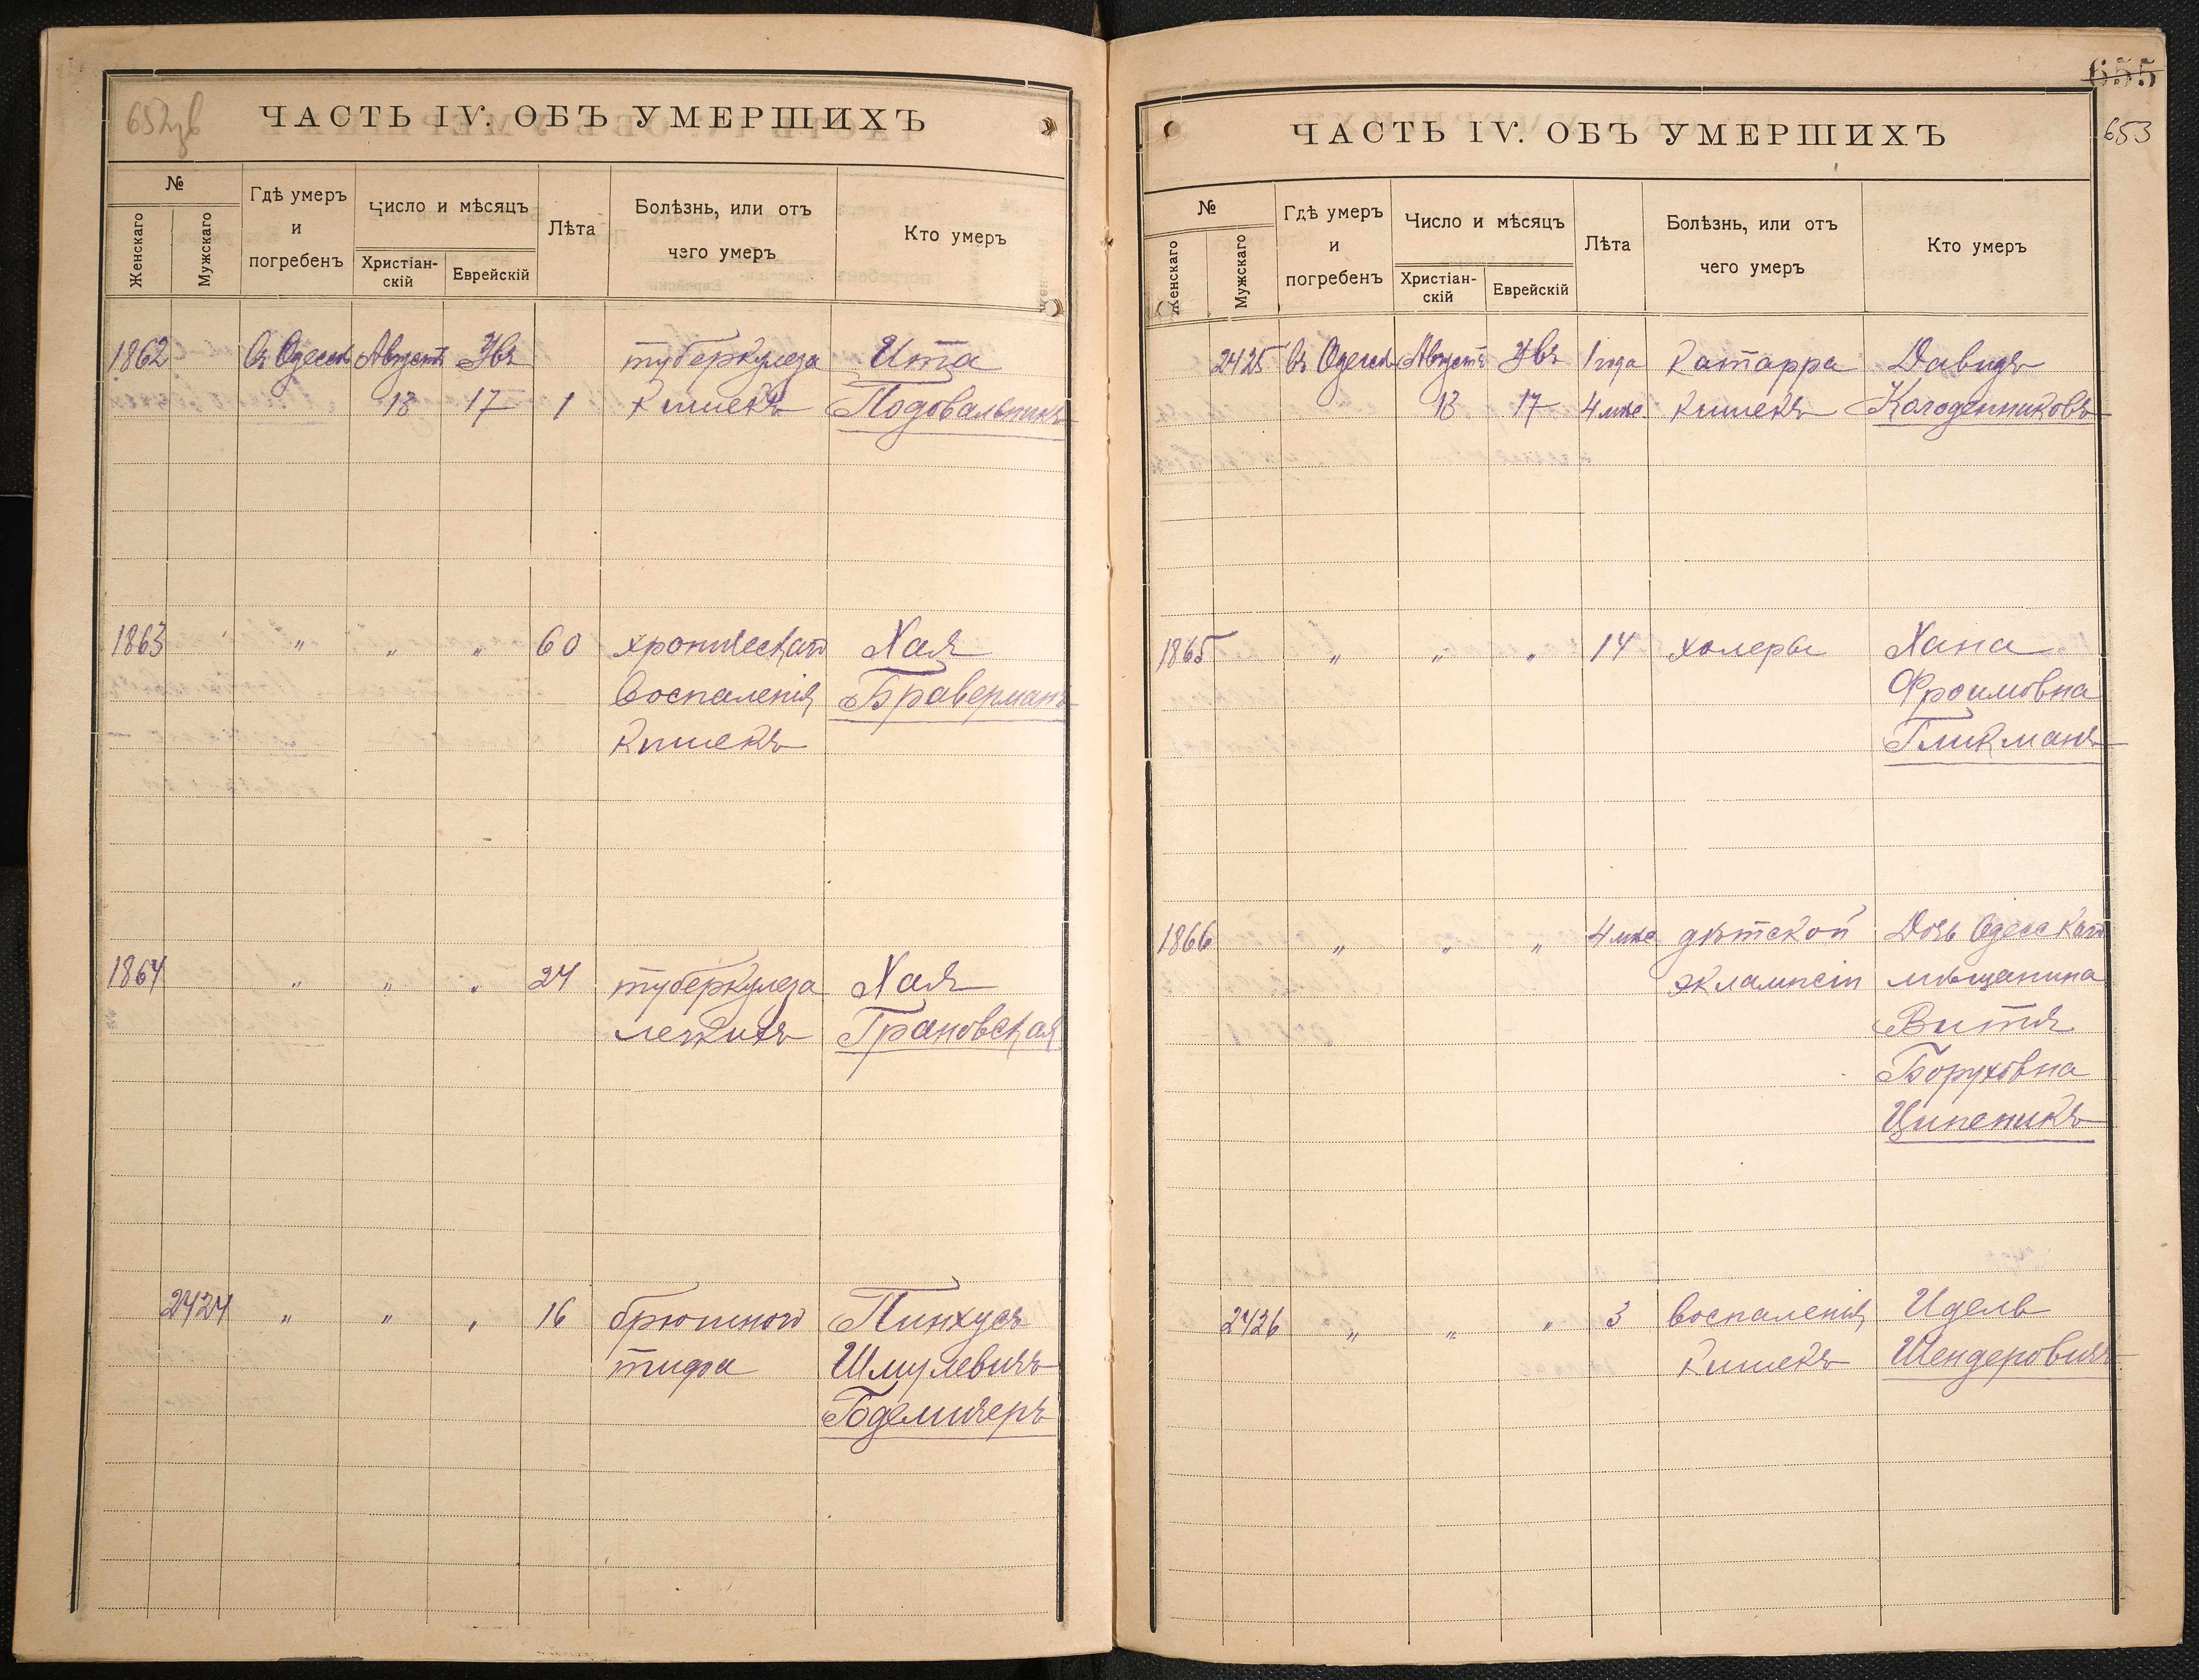 652зв
ЧАСТЬ IV. ОБЪ УМЕРШИХЪ
№
Женскаго
Мужскаго
Гдѣ умеръ
и
погребенъ
Число и мѣсяцъ
Христіан-
скій
Еврейскій
Лѣта
Болѣзнь, или отъ
чего умеръ
Кто умеръ
1862 Въ Одессѣ Августъ туберкулеза Ита
13 17 1 кишекъ Подовальникъ
1863 " " " 60 хроническаго Хая
воспаленія Браверманъ
кишекъ
1864 " " " 24 туберкулеза Хая
легкихъ Грановская
2424 " " " 16 брюшного Пинхусъ
тифа Шмулевичъ
655
653
ЧАСТЬ IV. ОБЪ УМЕРШИХЪ
№
Женскаго
Мужскаго
Гдѣ умеръ
и
погребенъ
Число и мѣсяцъ
Христіан-
скій
Еврейскій
Лѣта
Болѣзнь, или отъ
чего умеръ
Кто умеръ
2425 Въ Одессѣ Августъ 1 года катарра Давидъ
13 17 4 мѣс. кишекъ Колоденниковъ
1865 " " " 14 холеры Хана
Фроимовна
Гликманъ
1866 " " " 4 мѣс. дѣтской Дочь Одесскаго
эклампсіи мѣщанина
Витя
Боруховна
Ципеникъ
2426 " " " 3 воспаленія Идель
кишекъ Шендеровичъ